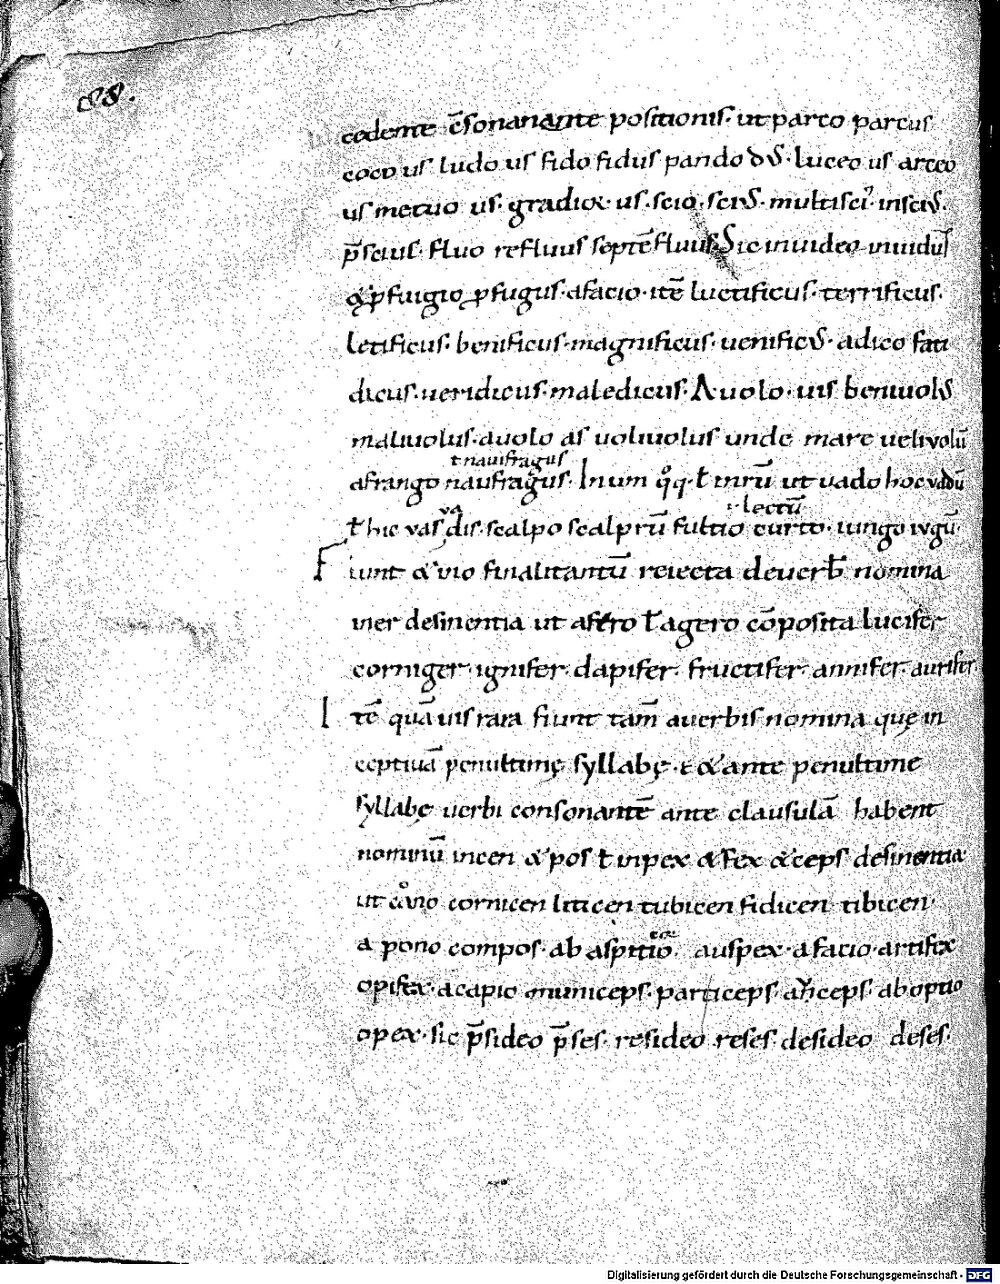 88.
cedente c̄sonanante positionis· ut parco parcus
coco us ludo us fido fidus pando dꝰ· luceo us arceo
us metuo us· gradior us· scio· sciꝰ· multisci᷒ insciꝰ·
p̄scius· fluo refluus septē fluus· Sic inuideo inuidus
& ꝓfuigio ꝓfugus· afacio· itē luctificus· terrificus·
letificus· benificus· magnificus· uenificꝰ· adico fati
dicus· ueridicus· maledicus· A uolo· uis beniuolꝰ
maliuolus· auolo as uoliuolus unde mare uelivolū
ł nauifragus
afrango naufragus· In um qͦq· ł inrū ut uado hoc vadū
va lectū
ł hic vas dis· scalpo scalprū fultio curto· iungo iugū·
Fiunt & uio finalitantū reiecta deuerb̄ nomina
iner desinentia ut affero ł agero cōposita lucifer
corniger ignifer· dapifer· fructifer· annifer· aurifer
Itē quā uis rara fiunt tam̄ auerbis nomina quę in
ceptiuā penultimę syllabę· & ante penultimę
syllabę uerbi consonantē ante clausulā habent
nominū incen & pos ł inpex & fex & ceps desinentia
ut cͦano cornicen liticen tubicen fidicen tibicen·
a pono compos· ab aspitio auspex· a facio· artifex
opifex· acapio municeps· particeps· an̄ceps· ab optio
opex· sic p̄sideo p̄ses· resideo reses· desideo deses·
Digitalisierung gefördert durch die Deutsche Forschungsgemeinschaft - DFG